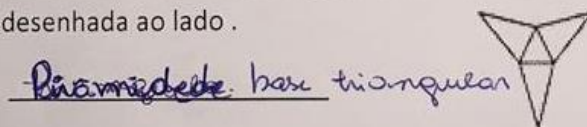 desenhada ao lado .
Piramidede base triangular